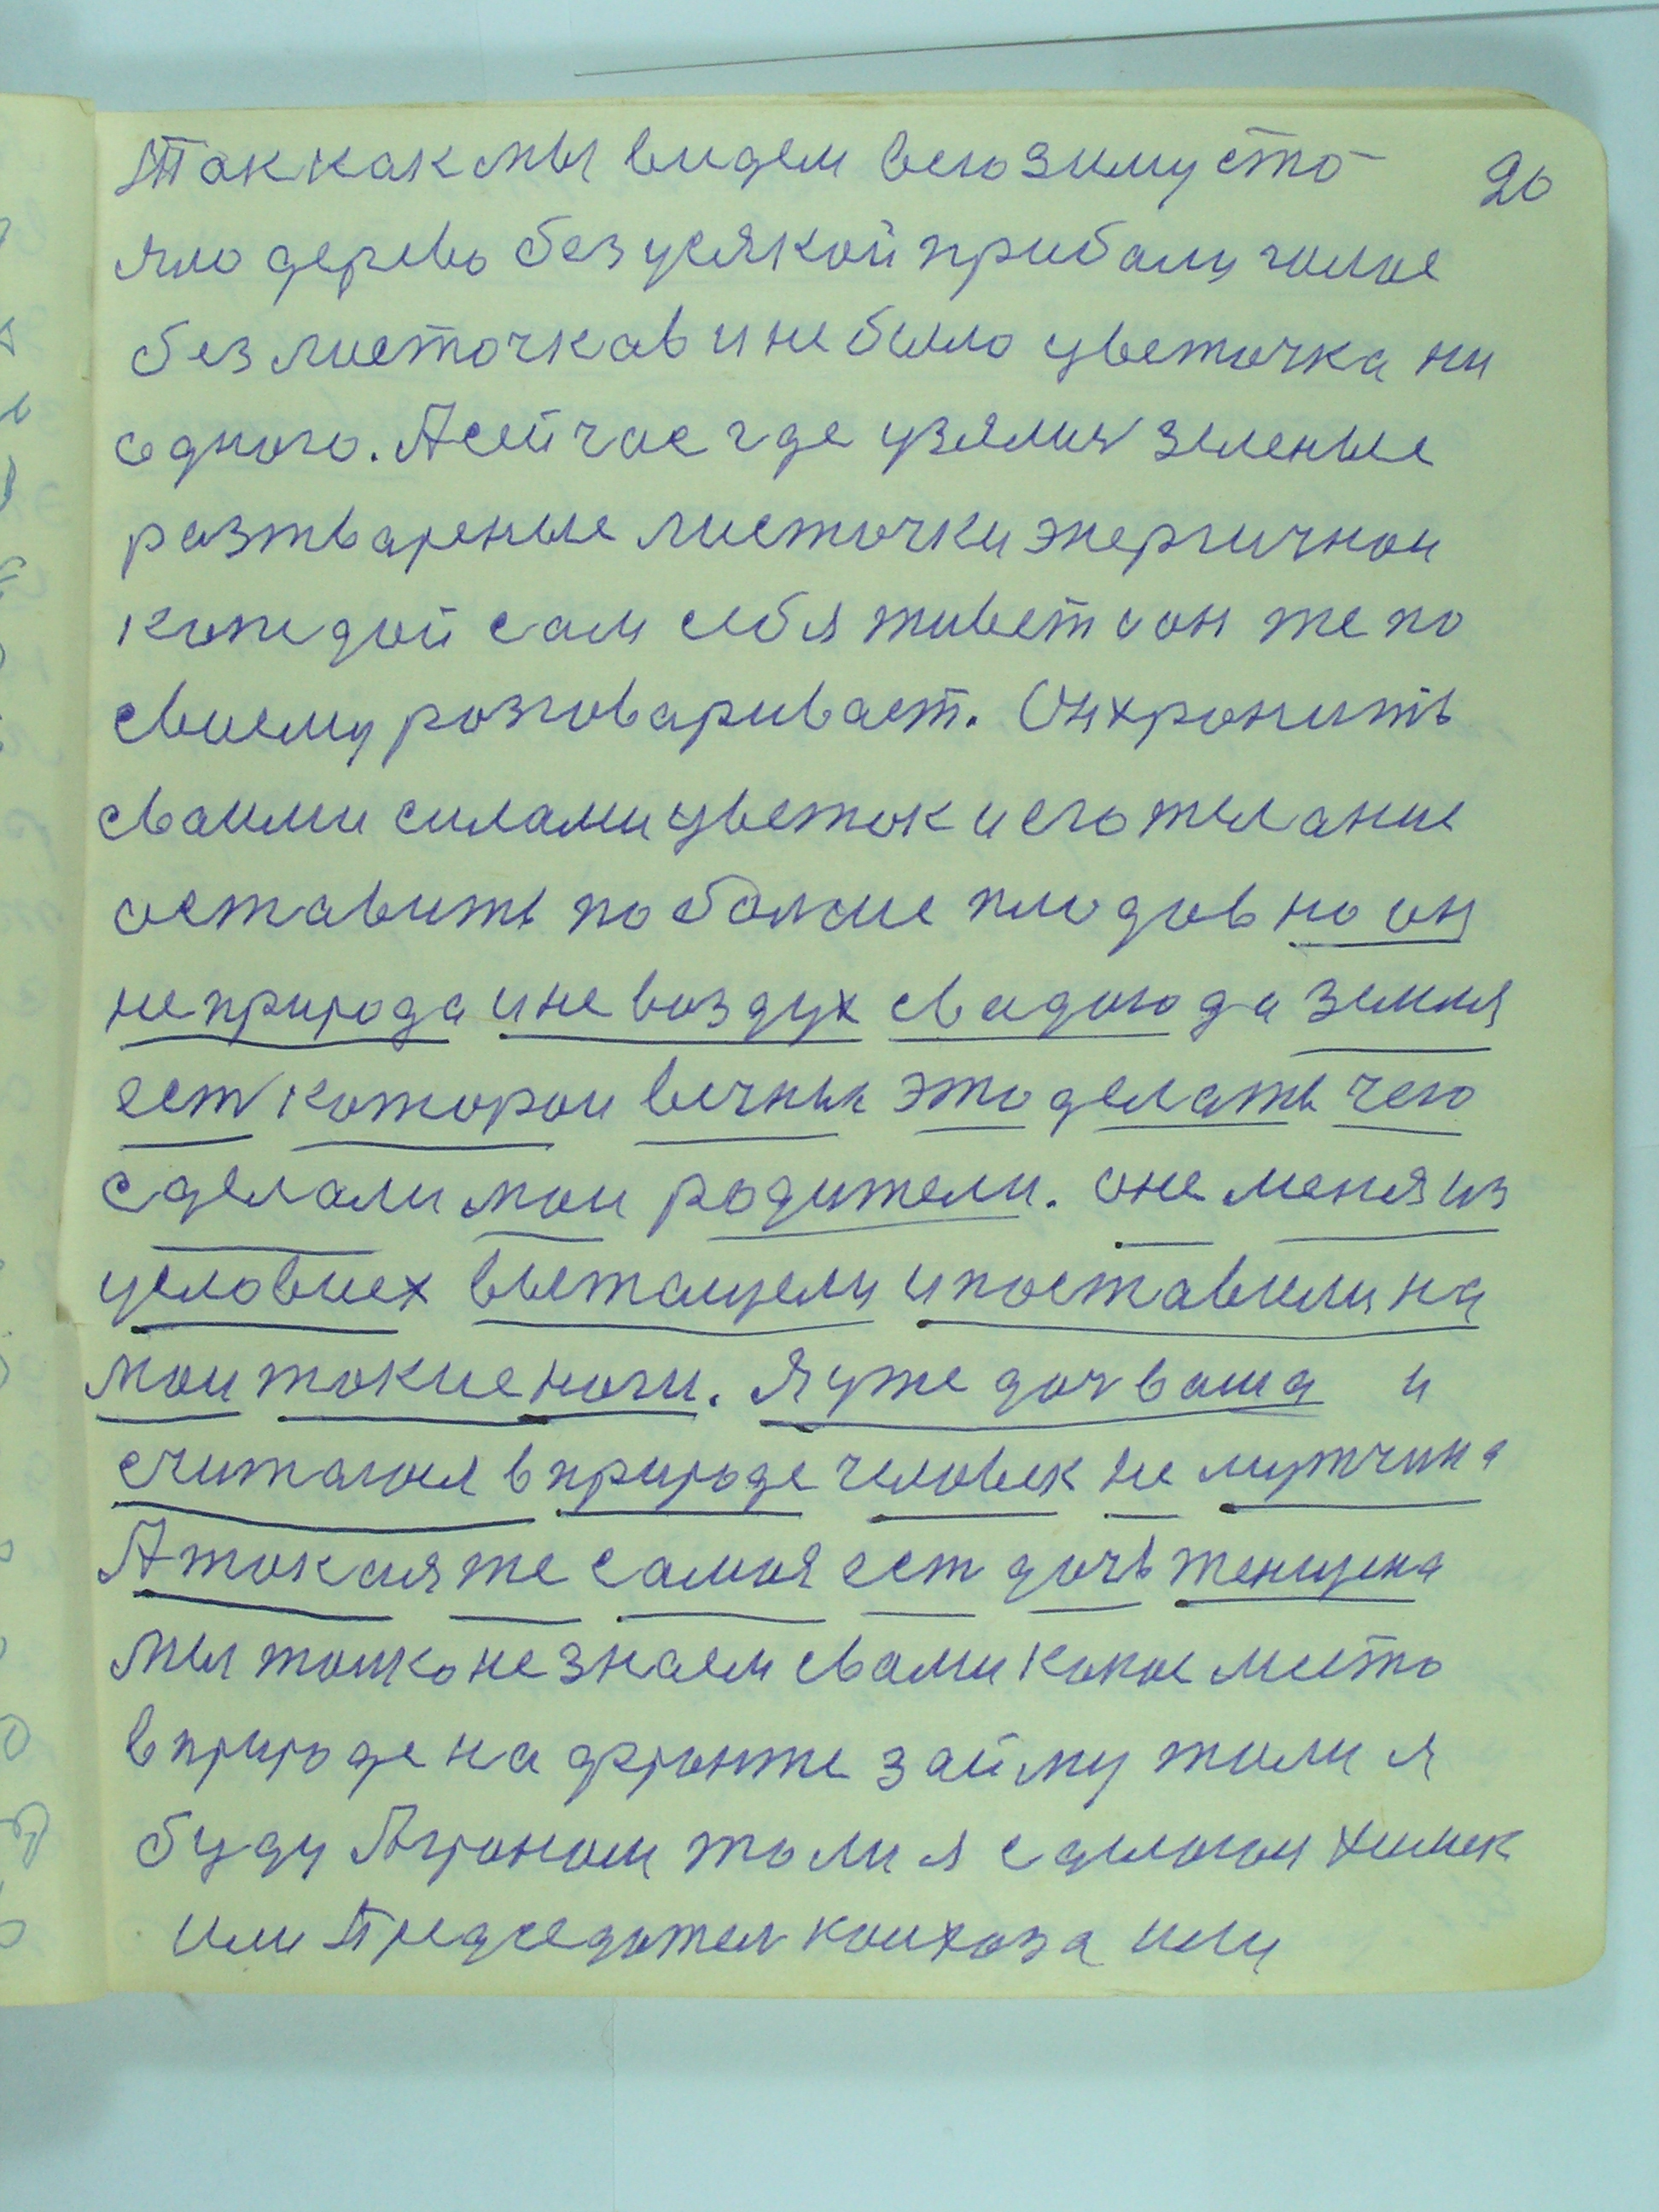 Так как мы видем всю зиму сто- 20
яло дерево без усякой прибали голое
без листочков и не было цветочка ни
одного. А сейчас где узялися зеленые
разтвареные листочки энергичнои
каждой сам себя живет и он же по
своему розговаривает. Он хронить
сваими силами цветок и его желание
оставить по больше плодов но он
не природа и не воздух сводою да земля
ест которои вечны это делать чего
сделали мои родители. оне меня из
условиех вытащели и поставили на
мои такие ноги. Я уже доч ваша и
считаюся в природе человек не мужчина
А такая же самая ест дочь женщена
мы толко не знаем свами какое место
в природе на фронте займу то ли я
буду Агроном то ли я сделаюся химек
или Председател колхоза или